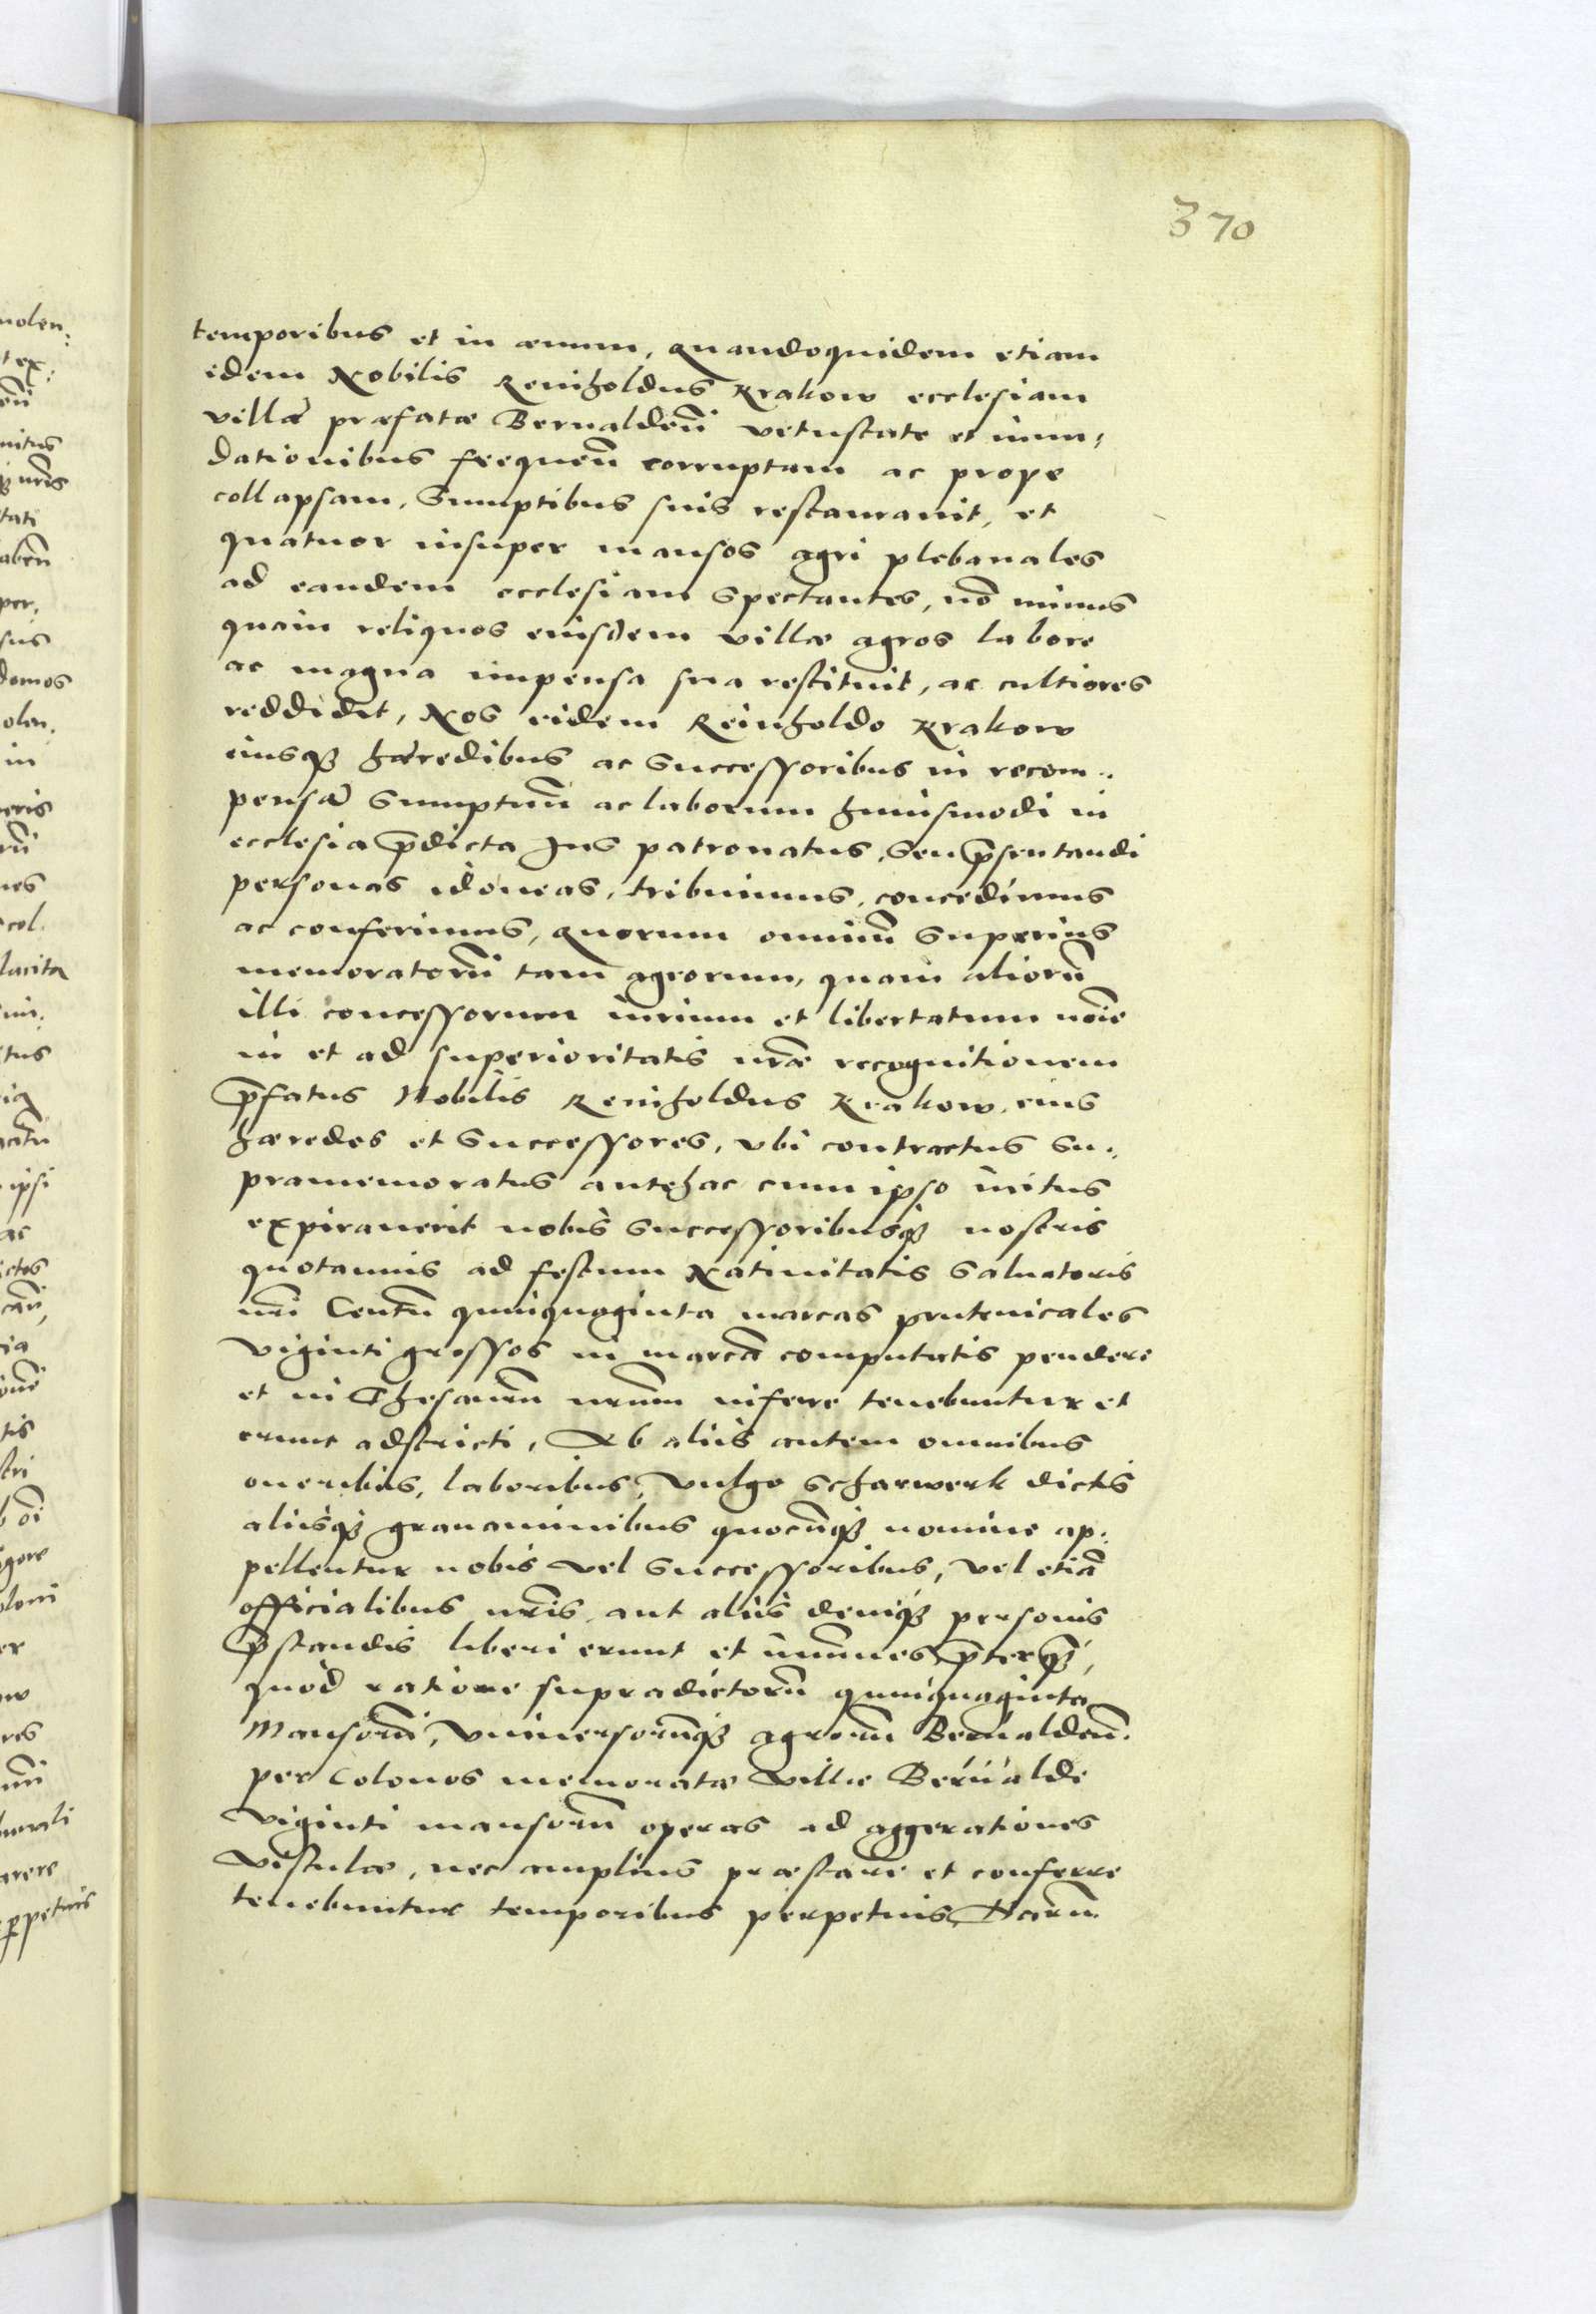 370
temporibus et in æuum, Quandoquidem etiam
idem Nobilis Reinholdus Krakow ecclesiam
villæ præfatæ Beruualdeñ vetustate et inun,
dationibus frequeñ corruptam ac prope
collapsam, Sumptibus suis restaurauit, et
quatuor insuper mansos agri plebanales
ad eandem ecclesiam Spectantes, nõ minus
quam reliquos eiusdem villæ agros labore
ac magna impensa sua restituit, ac cultiores
reddidit, Nos eidem Reinholdo Krakow
eiusqȝ hæredibus ac Successoribus in recom.,
pensã Sumptuũ ac laborum huiusmodi in
ecclesia p̃dicta Jus patronatus, Seu p̃sentandi
personas idoneas, tribuimus, concedimus
ac conferimus, Quorum omniũ Superius
memoratorũ tam agrorum, quam aliorũ
illi concessorum iurium et libertatum noĩe
in et ad superioritatis nr̃æ recognitionem
p̃fatus Nobilis Reinholdus Krakow, eius
hæredes et Successores, vbi contractus Su.,
pramemoratus antehac cum ipso initus
expirauerit nobis Successoribusqȝ nostris
quotannis ad festum Natiuitatis Saluatoris
nr̃i Centũ quinquaginta marcas prutenicales
Viginti grossos in marcã computatis pendere
et in Thesaurũ nr̃um inferre tenebuntur et
erunt adstricti, Ab aliis autem omnibus
oneribus, laboribus, Vulgo Scharwerk dictis
aliisqȝ grauaminibus quocũqȝ nomine ap.,
pellentur nobis vel Successoribus, vel etiã
officialibus nr̃is aut aliis deniqȝ personis
p̃standis liberi erunt et im̃unes p̃terqȝ,
quod ratione supradictorũ quinquaginta
Mansorũ, Vniuersorũqȝ agrorũ Beruualdeñ.
per Colonos memoratæ Villæ Beruualde
Viginti mansorũ operas ad aggerationes
Vistulæ, nec amplius præstare et conferre
tenebuntur temporibus perpetuis, Harũ